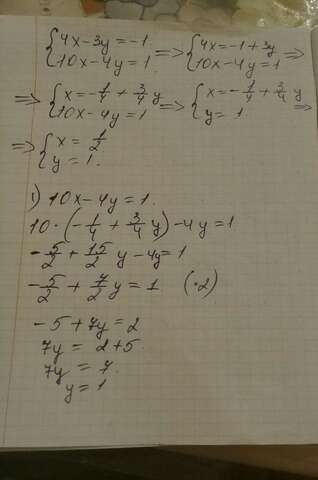 {4x-3y=-1 10x-4y=1 => {4x=-1+3y 10x-4y=1 =>
=> {x=-1/4+3/4 y 10x-4y=1 => {x=-1/4+3/4 y y=1 =>
=> {x=1/2 y=1.
1) 10x-4y=1.
10·(-1/4+3/4 y)-4y=1
-5/2+15/2 y-4y=1
-5/2+7/2 y=1 (·2)
-5+7y=2
7y=2+5.
7y=7.
y=1